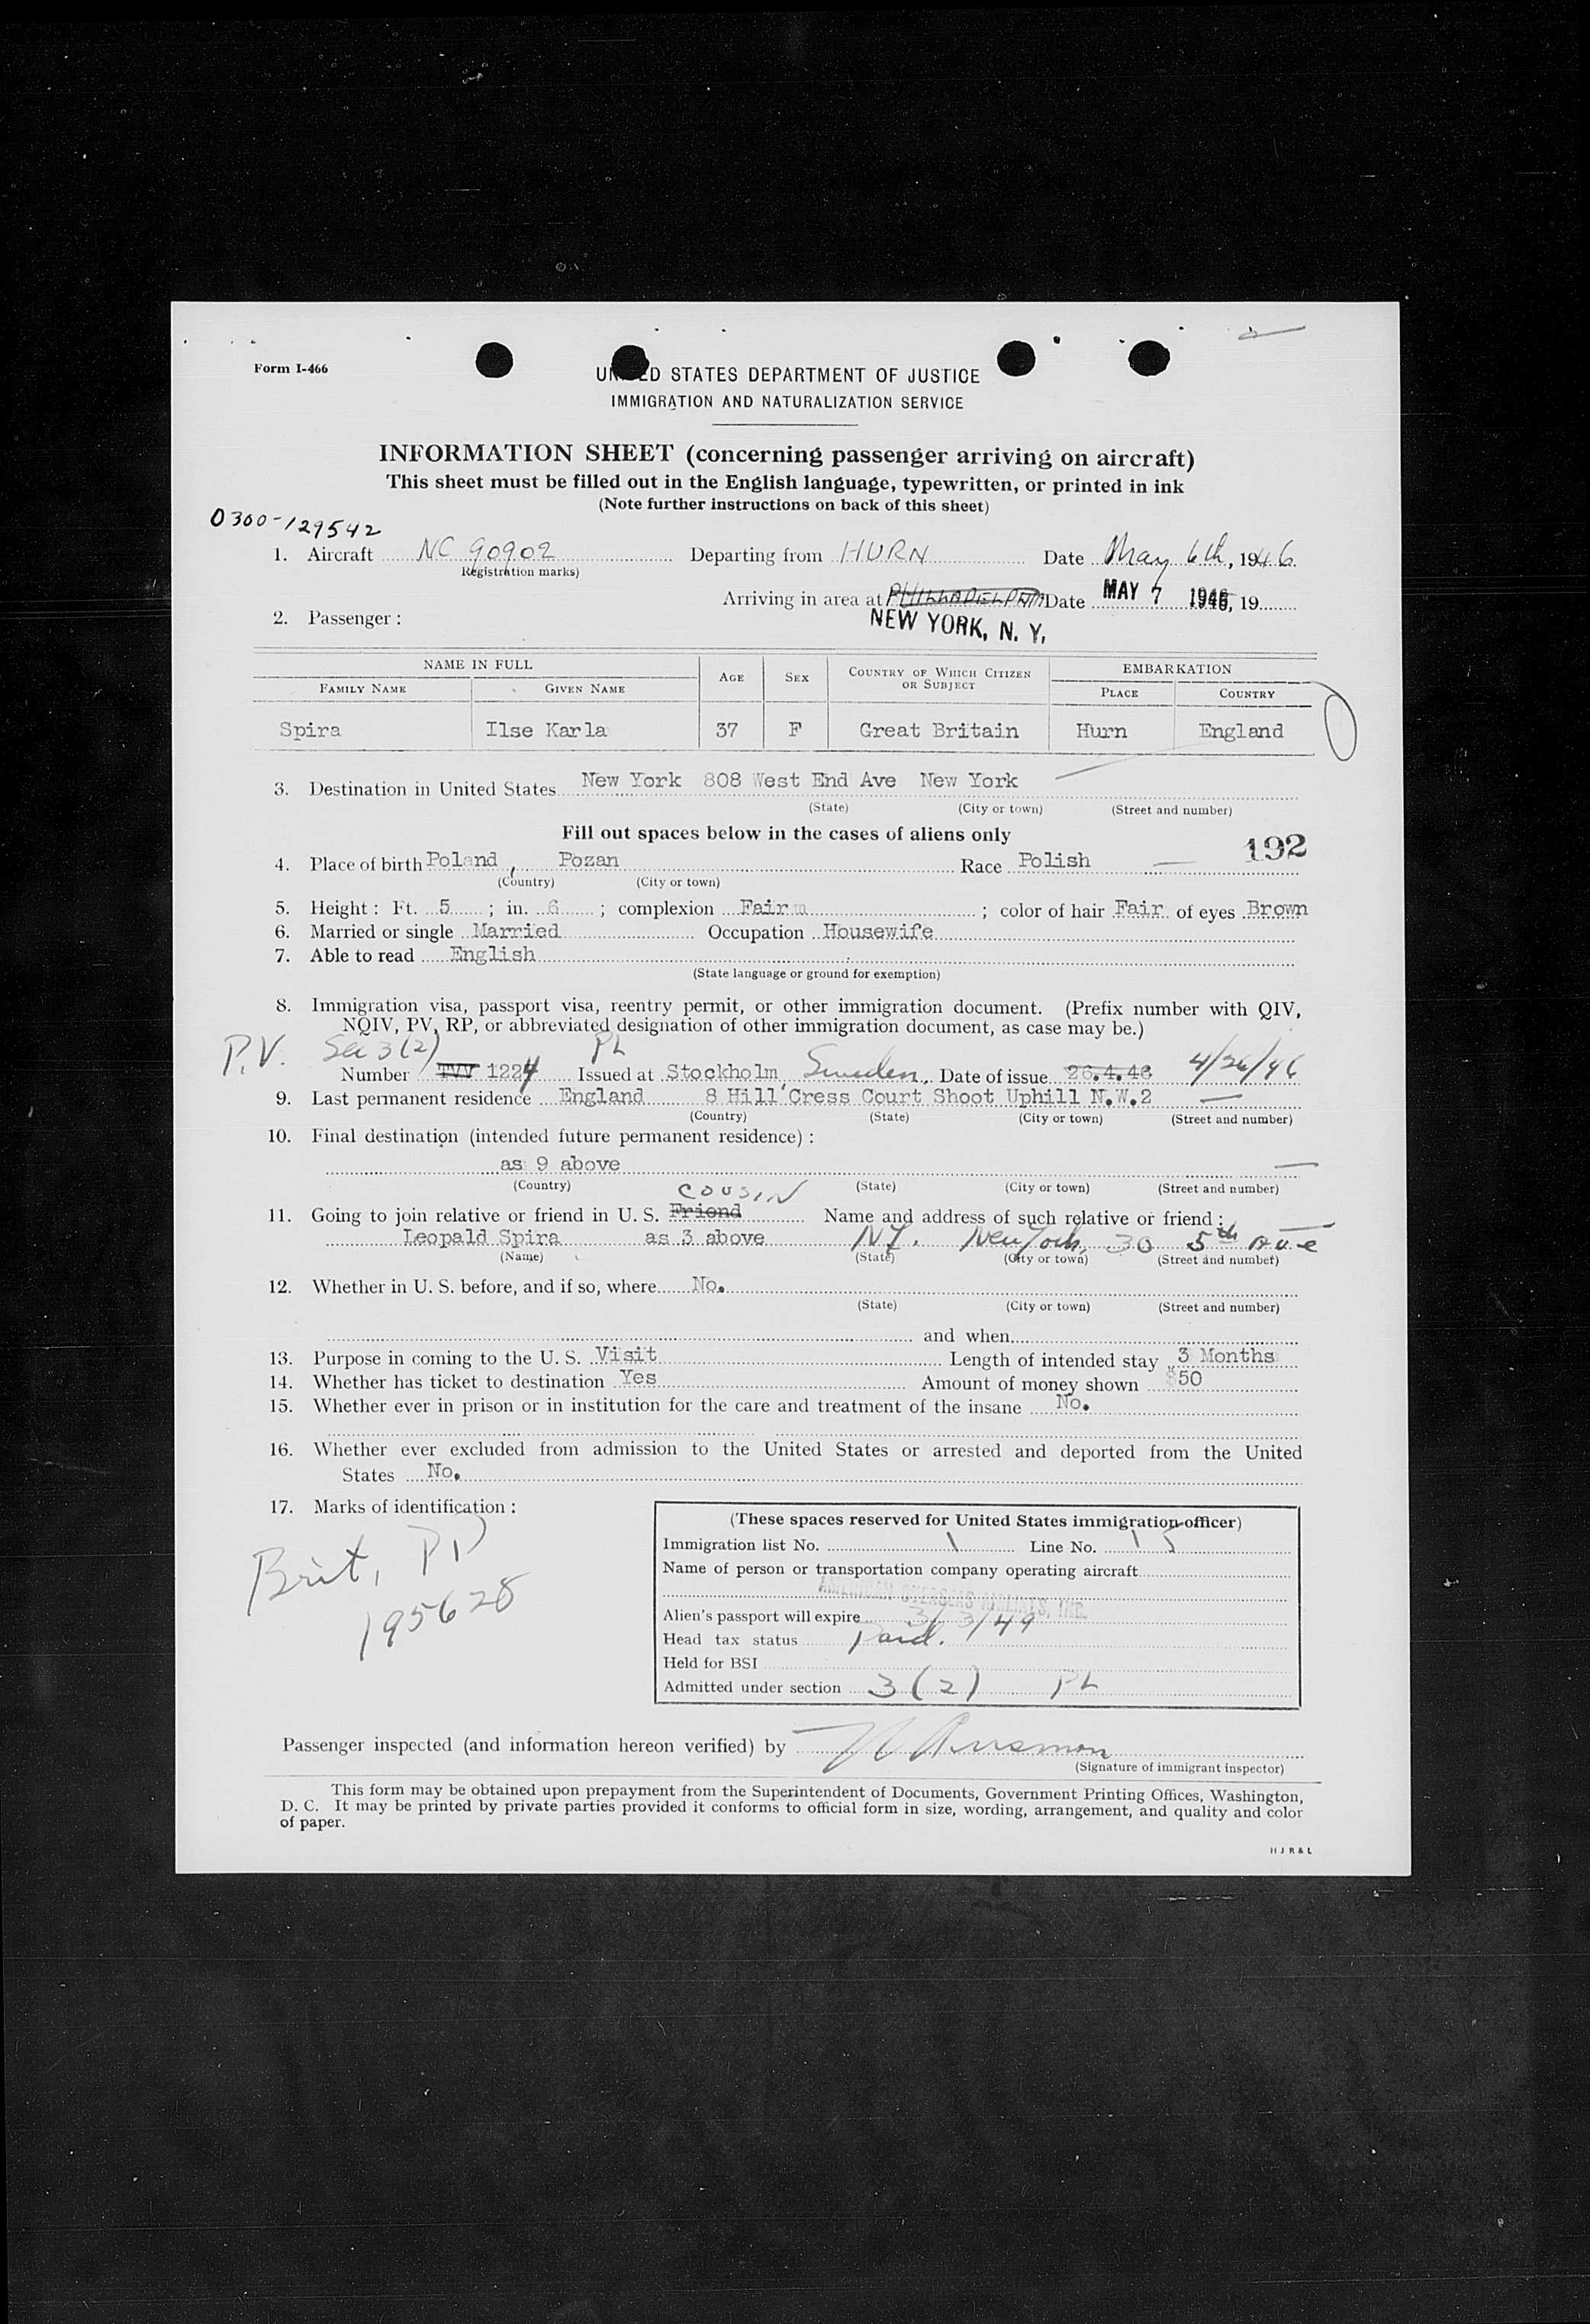 Form I-466
UNITED STATES DEPARTMENT OF JUSTICE
IMMIGRATION AND NATURALIZATION SERVICE
INFORMATION SHEET (concerning passenger arriving on aircraft)
This sheet must be filled out in the English language, typewritten, or printed in ink
(Note further instructions on back of this sheet)
0300-129542
1. Aircraft NC 90902 Departing from HURN Date May 6th, 1946.
(Registration marks)
Arriving in area at PHILLADELPHIA Date MAY 7 1946, 19
2. Passenger : NEW YORK, N. Y.
NAME IN FULL AGE SEX COUNTRY OF WHICH CITIZEN OR SUBJECT EMBARKATION
FAMILY NAME GIVEN NAME PLACE COUNTRY
Spira Ilse Karla 37 F Great Britain Hurn England
3. Destination in United States New York 808 West End Ave New York
(State) (City or town) (Street and number)
Fill out spaces below in the cases of aliens only
192
4. Place of birth Poland , Pozan Race Polish
(Country) (City or town)
5. Height : Ft. 5 ; in. 6 ; complexion Fair ; color of hair Fair of eyes Brown
6. Married or single Married Occupation Housewife
7. Able to read English
(State language or ground for exemption)
8. Immigration visa, passport visa, reentry permit, or other immigration document. (Prefix number with QIV,
NQIV, PV, RP, or abbreviated designation of other immigration document, as case may be.)
P.V. Sec 3(2) PL
Number TVV 1224 Issued at Stockholm, Sweden, Date of issue 26.4.46 4/26/46
9. Last permanent residence England 8 Hill Cress Court Shoot Uphill N.W.2
(Country) (State) (City or town) (Street and number)
10. Final destination (intended future permanent residence) :
as 9 above
(Country) (State) (City or town) (Street and number)
COUSIN
11. Going to join relative or friend in U. S. Friend Name and address of such relative or friend :
Leopald Spira as 3 above NY. New York, 30 5th Ave
(Name) (State) (City or town) (Street and number)
12. Whether in U. S. before, and if so, where No.
(State) (City or town) (Street and number)
and when
13. Purpose in coming to the U. S. Visit Length of intended stay 3 Months
14. Whether has ticket to destination Yes Amount of money shown $50
15. Whether ever in prison or in institution for the care and treatment of the insane No.
16. Whether ever excluded from admission to the United States or arrested and deported from the United
States No.
17. Marks of identification :
Brit, PP
195628
(These spaces reserved for United States immigration officer)
Immigration list No. 1 Line No. 15
Name of person or transportation company operating aircraft
AMERICAN OVERSEAS AIRLINES, INC.
Alien's passport will expire 3/3/49
Head tax status Paid.
Held for BSI
Admitted under section 3(2) PL
Passenger inspected (and information hereon verified) by
(Signature of immigrant inspector)
This form may be obtained upon prepayment from the Superintendent of Documents, Government Printing Offices, Washington,
D. C. It may be printed by private parties provided it conforms to official form in size, wording, arrangement, and quality and color
of paper.
H J R & L